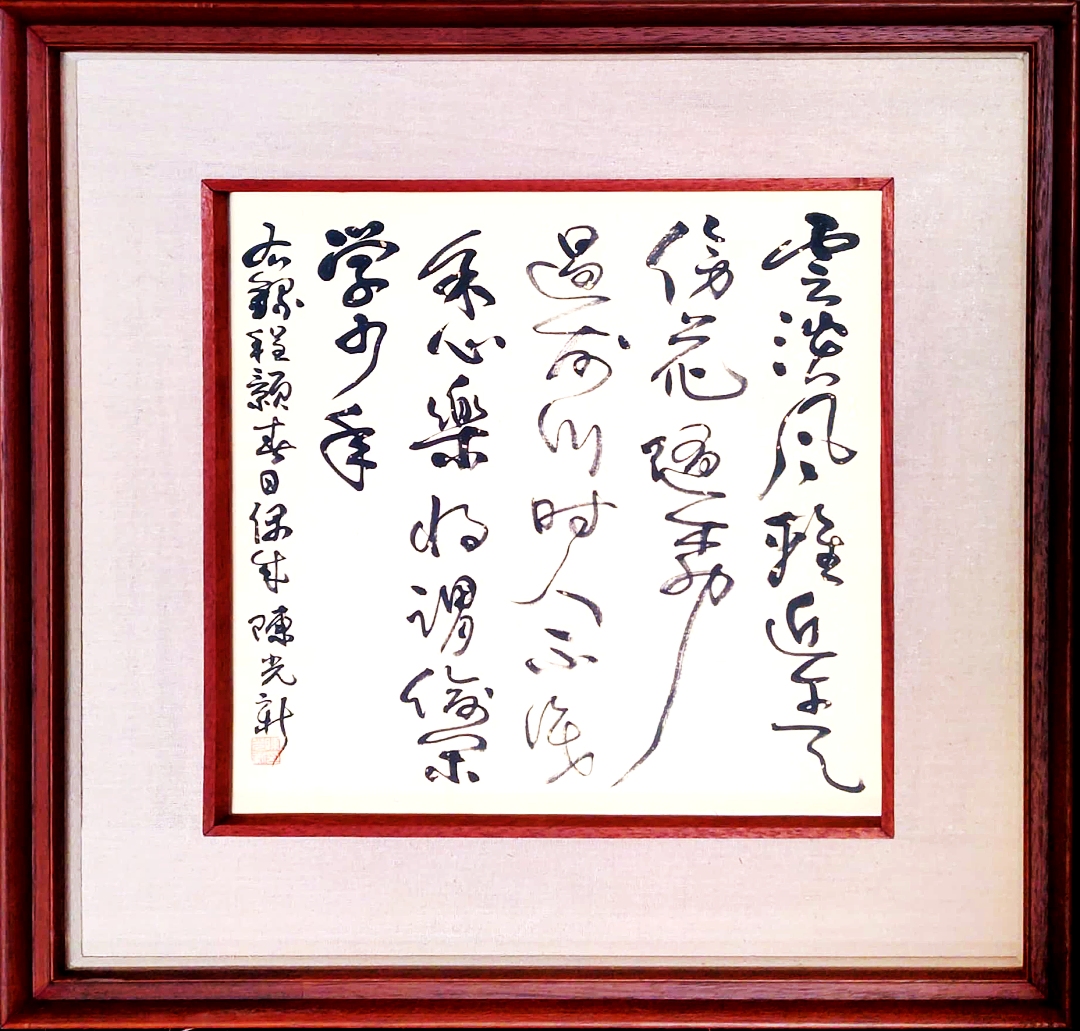 雲淡風輕近午天
傍花隨柳
過前川時人不識
余心樂將謂偷閑
学少年
右錄程顥春日偶成 陳光新